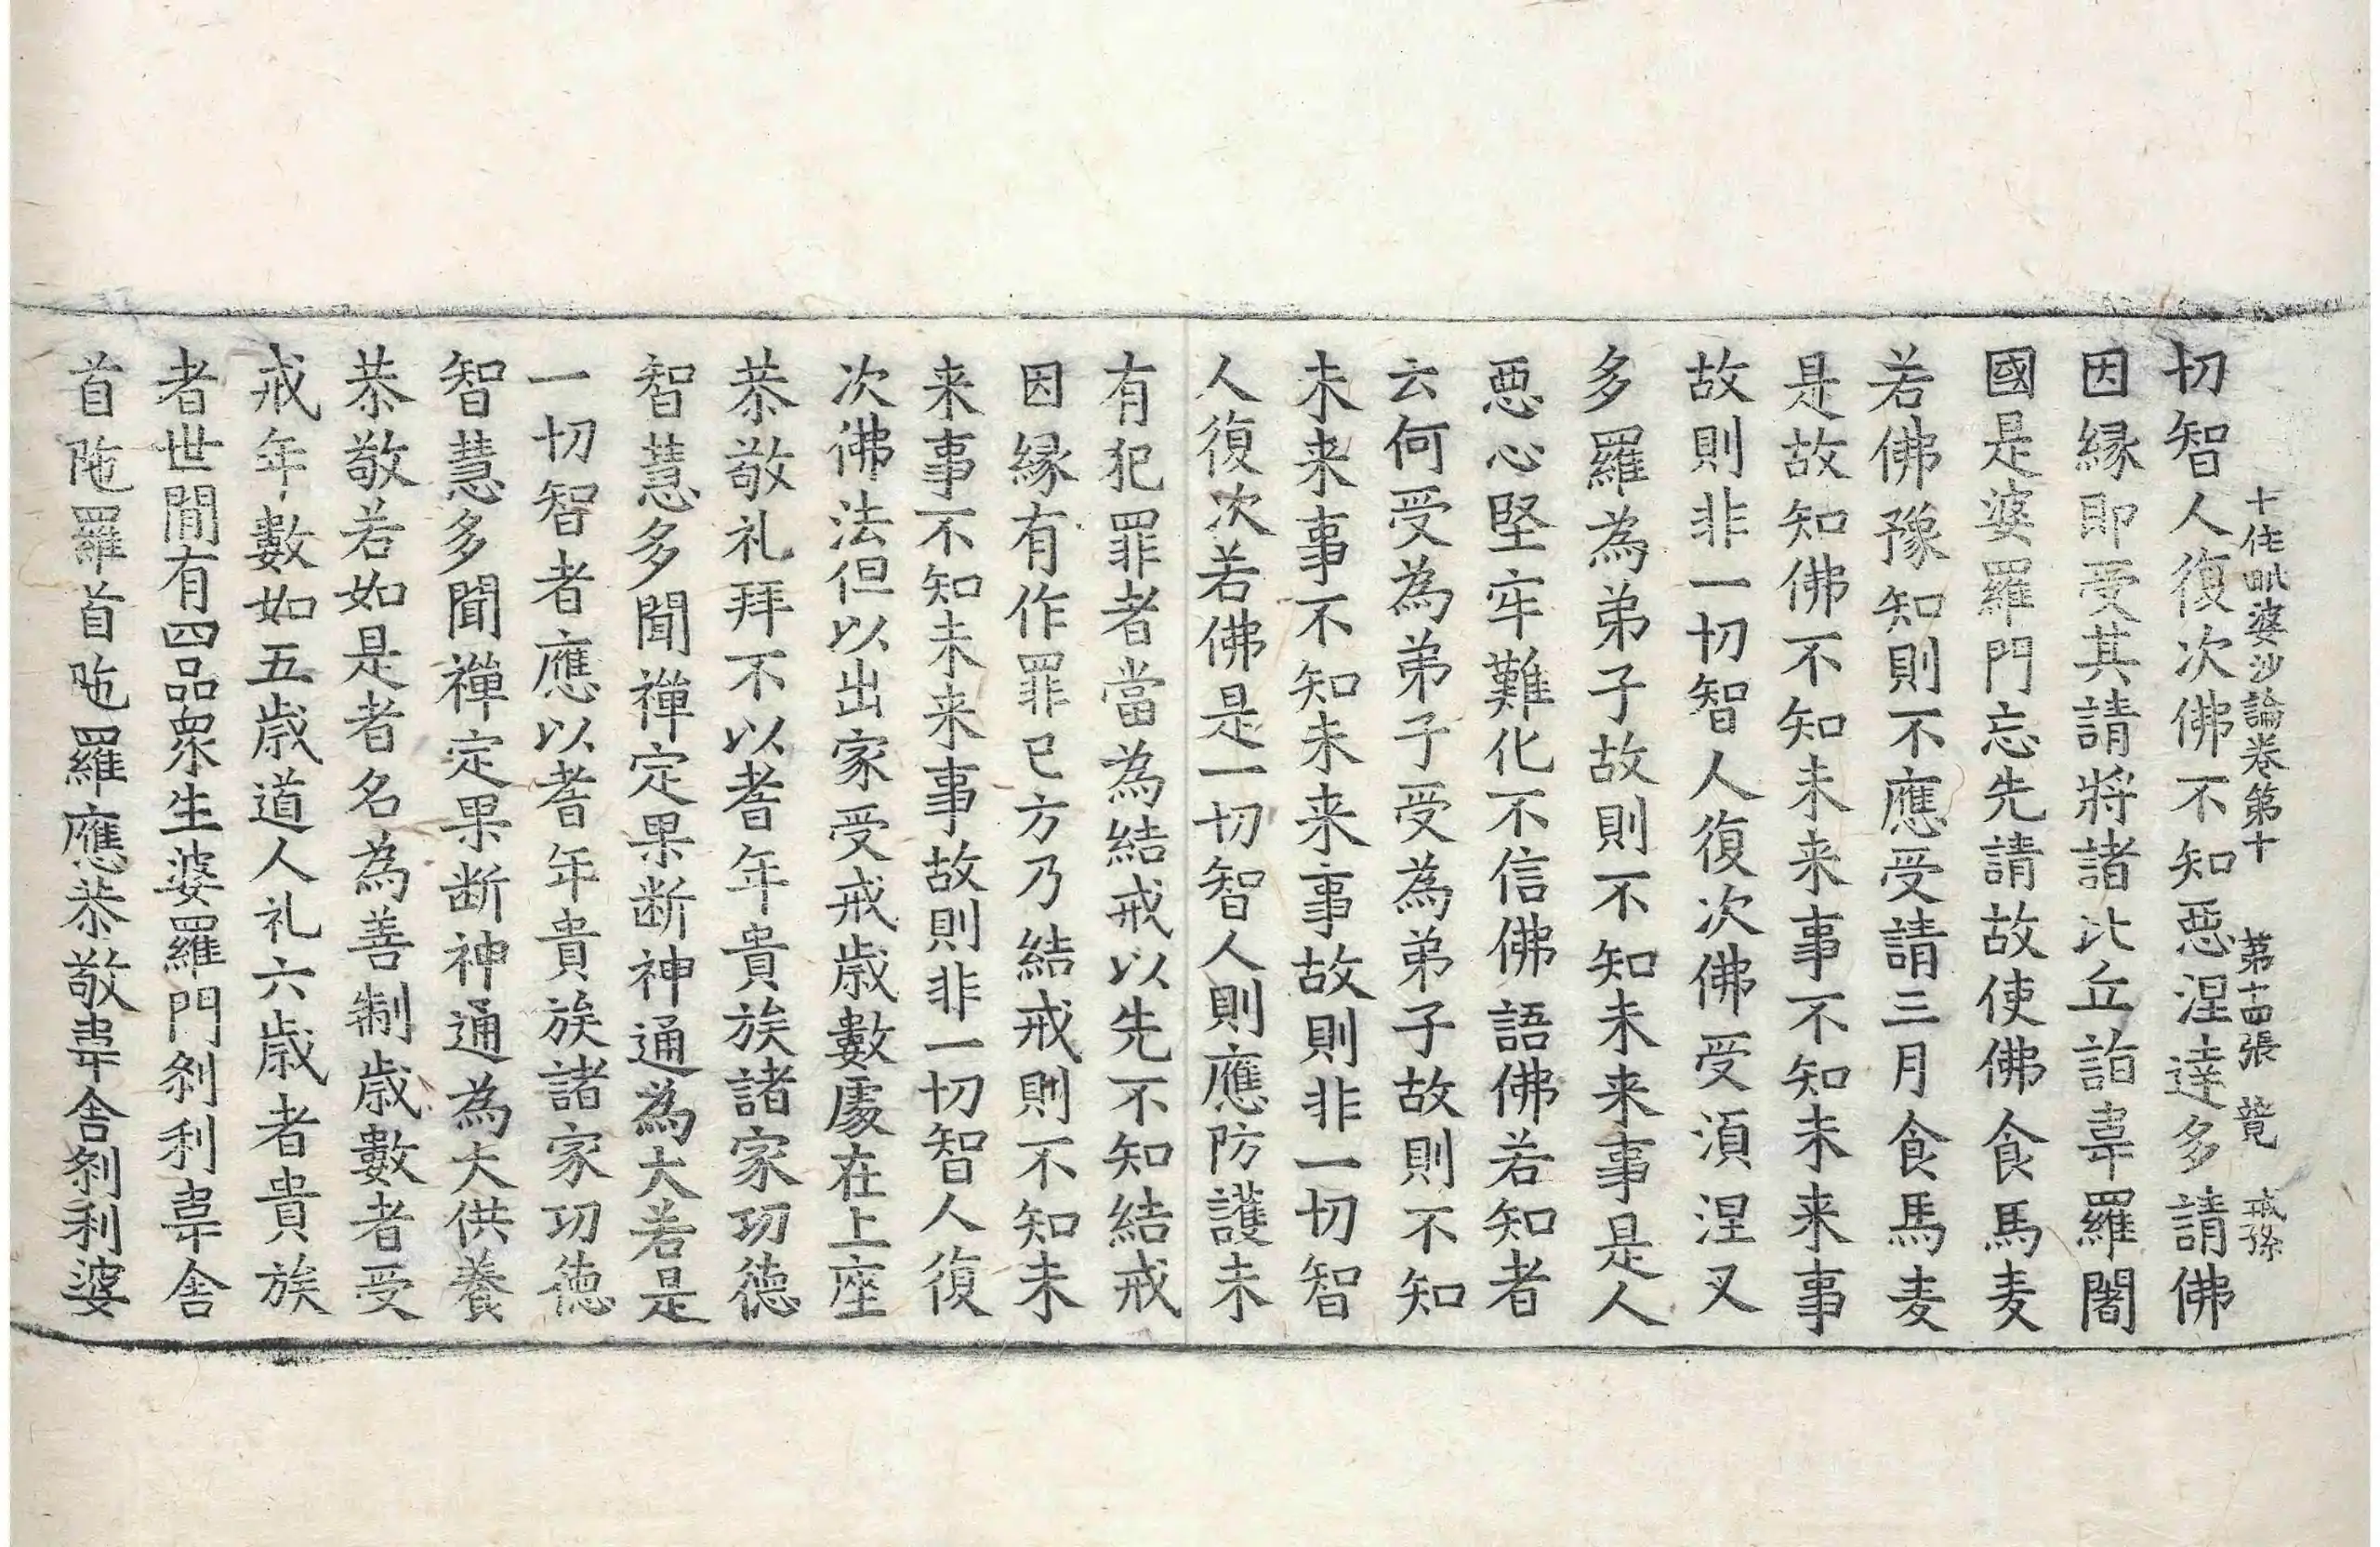 十住毗婆沙論卷第十 第十四張 䒳 戒孫
切智人復次佛不知惡涅達多請佛
因縁即受其請將諸比丘詣韋羅闍
國是婆羅門忘先請故使佛食馬麦
若佛豫知則不應受請三月食馬麦
是故知佛不知未来事不知未来事
故則非一切智人復次佛受湏涅叉
多羅為弟子故則不知未来事是人
惡心堅牢難化不信佛語佛若知者
云何受為弟子受為弟子故則不知
未来事不知未来事故則非一切智
人復次若佛是一切智人則應防護未
有犯罪者當為結戒以先不知結戒
因縁有作罪已方乃結戒則不知未
来事不知未来事故則非一切智人復
次佛法但以出家受戒歳數處在上座
恭敬礼拜不以耆年貴族諸家功德
智慧多聞禪定果断神通為大若是
一切智者應以耆年貴族諸家功德
智慧多聞禪定果断神通為大供養
恭敬若如是者名為善制歳數者受
戒年數如五歳道人礼六歳者貴族
者世間有四品衆生婆羅門刹利韋舍
首陁羅首陁羅應恭敬韋舍刹利婆